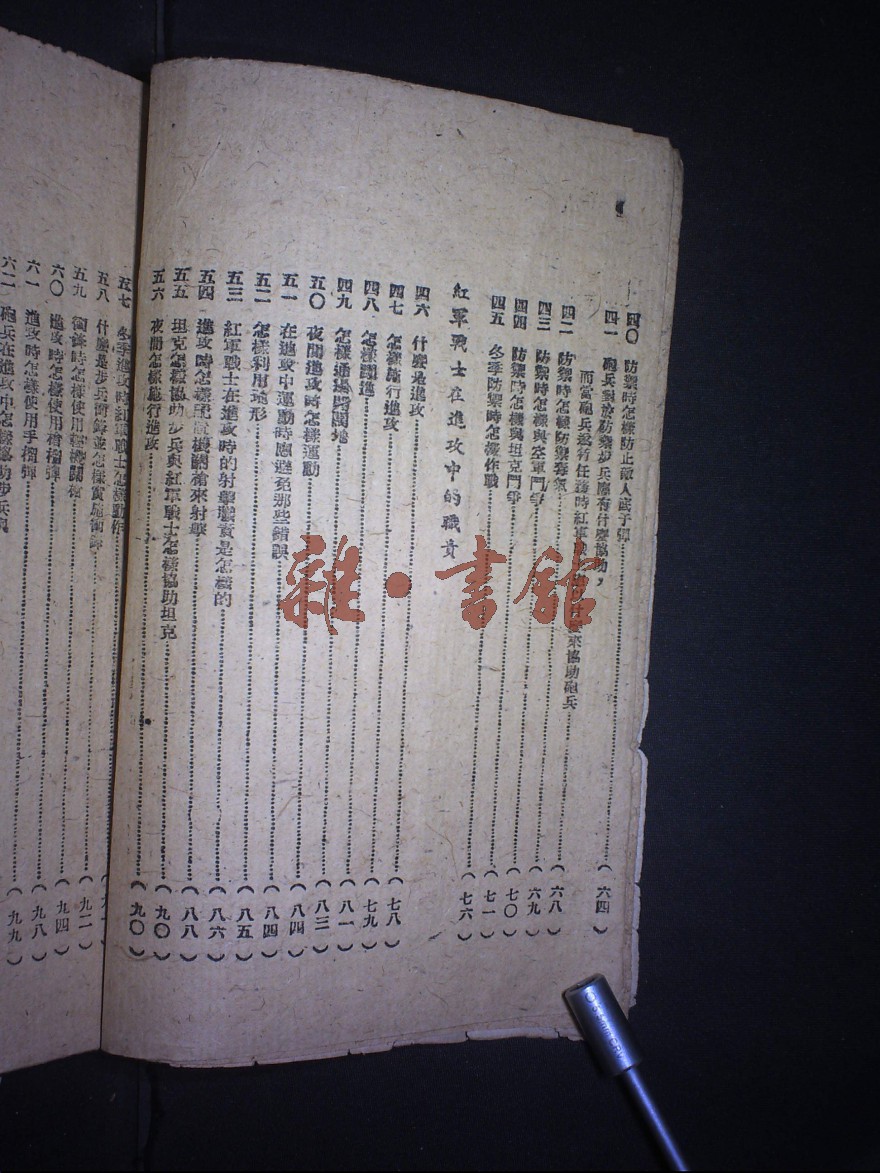 四〇 防禦時怎樣防止敵人底子彈
四一 砲兵對於防禦步兵應有什麼協助，
而當砲兵執行任務時紅軍戰士來協助砲兵（六四）
四二 防禦時怎樣防禦毒氣（六八）
四三 防禦時怎樣與空軍鬥爭（六九）
四四 防禦時怎樣與坦克鬥爭（七〇）
四五 冬季防禦時怎樣作戰（七一）
紅軍戰士在進攻中的職責（七六）
四六 什麼是進攻
四七 怎樣施行進攻（七八）
四八 怎樣躍進（七九）
四九 怎樣通過開闊地（八一）
五〇 夜間進攻時怎樣運動（八三）
五一 在進攻中運動時應避免那些錯誤（八四）
五二 怎樣利用地形（八四）
五三 紅軍戰士在進攻時的射擊職責是怎樣的（八五）
五四 進攻時怎樣用輕機關槍來射擊（八六）
五五 坦克怎樣協助步兵與紅軍戰士怎樣協助坦克（八八）
五六 夜間怎樣施行進攻（九〇）
五七 冬季進攻時紅軍戰士怎樣動作（九〇）
五八 什麼是步兵衝鋒並怎樣實施衝鋒
五九 衝鋒時怎樣使用輕機關槍（九二）
六〇 進攻時怎樣使用槍榴彈（九四）
六一 進攻時怎樣使用手榴彈（九八）
六二 砲兵在進攻中怎樣協助步兵（九九）
雜·書館